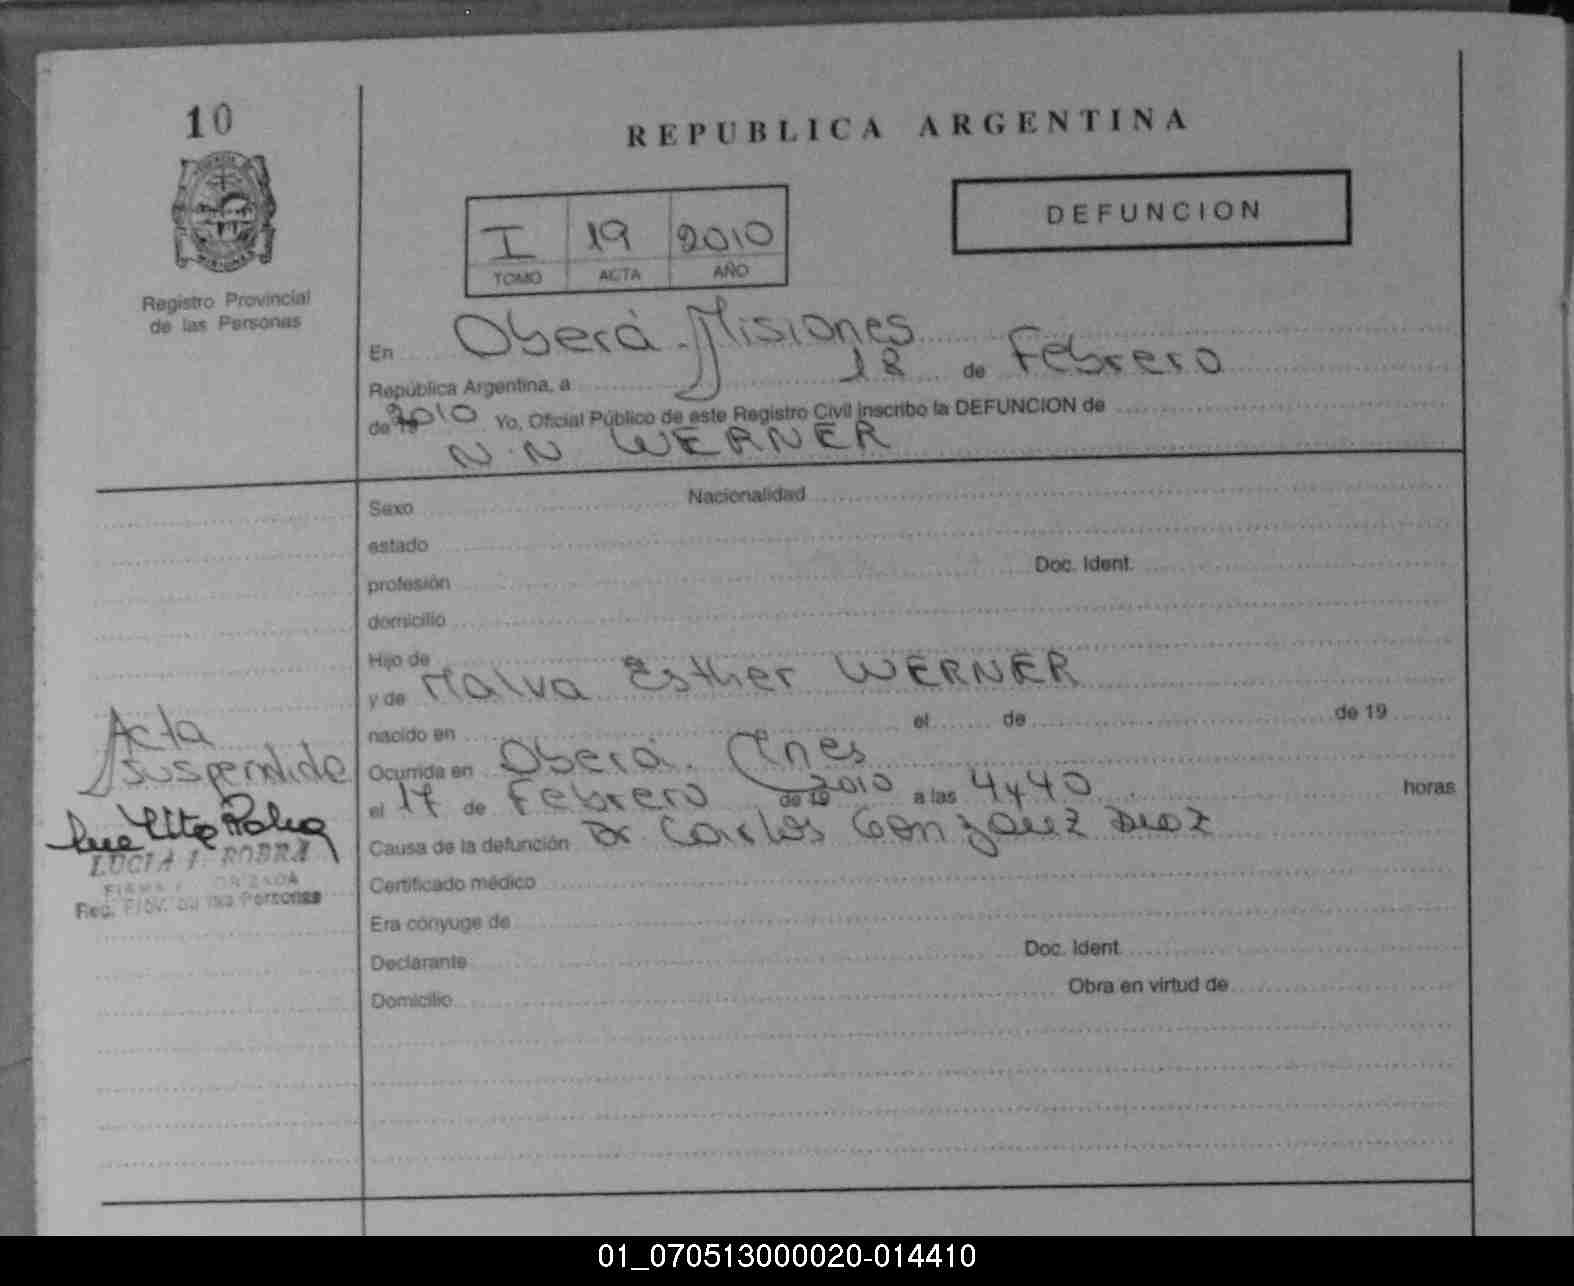 10
Registro Provincial
de las Personas
REPUBLICA ARGENTINA
I 19 2010
TOMO ACTA AÑO
DEFUNCION
En Oberá. Misiones
República Argentina, a 18 de Febrero
de 19 2010 Yo, Oficial Público de este Registro Civil inscribo la DEFUNCION de
N.N WERNER
Sexo Nacionalidad
estado
profesión Doc. Ident.
domicilio
Hijo de
y de Malva Esther WERNER
nacido en el de de 19
Ocurrida en Oberá. Mnes
el 17 de Febrero de 19 2010 a las 4y40 horas
Causa de la defunción Dr Carlos Gonzalez
Certificado médico
Era cónyuge de
Declarante Doc. Ident.
Domicilio Obra en virtud de
Acta
suspendida
LUCIA I. ROBRA
Reg. Prov. de las Personas
01_070513000020-014410